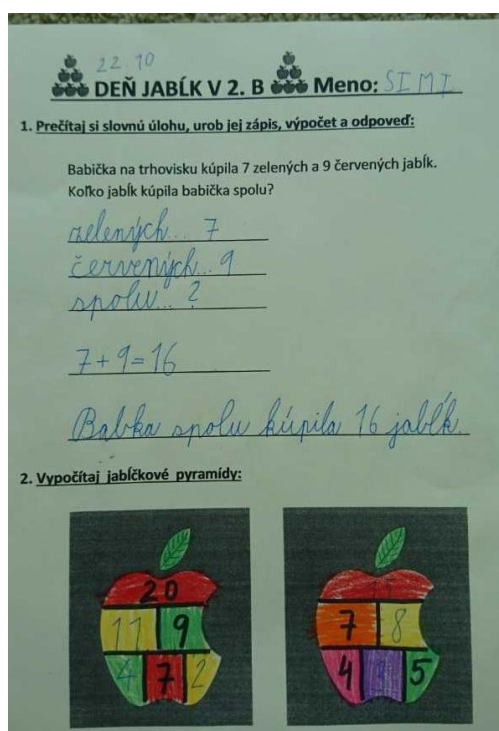 22.10
DEŇ JABĹK V 2. B Meno: SIMI
1. Prečítaj si slovnú úlohu, urob jej zápis, výpočet a odpoveď:
Babička na trhovisku kúpila 7 zelených a 9 červených jabĺk.
Koľko jabĺk kúpila babička spolu?
zelených... 7
červených... 9
spolu... ?
7+9=16
Babka spolu kúpila 16 jabĺk.
2. Vypočítaj jabĺčkové pyramídy:
20
11 9
4 7 2
15
7 8
4 3 5